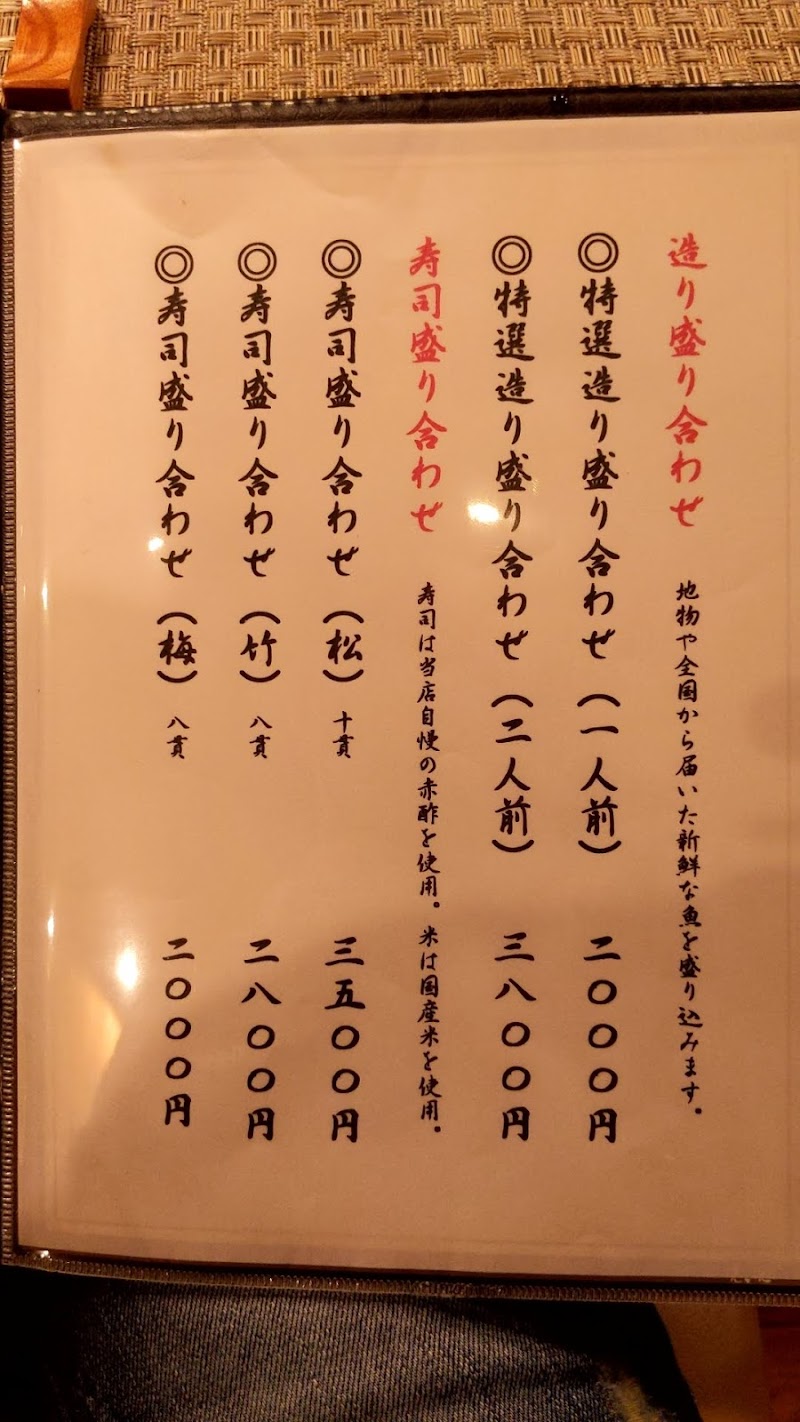 造り盛り合わせ 地物や全国から届いた新鮮な魚を盛り込みます。
◎特選造り盛り合わせ（一人前） 二〇〇〇円
◎特選造り盛り合わせ（二人前） 三八〇〇円
寿司盛り合わせ 寿司は当店自慢の赤酢を使用。米は国産米を使用。
◎寿司盛り合わせ（松） 十貫 三五〇〇円
◎寿司盛り合わせ（竹） 八貫 二八〇〇円
◎寿司盛り合わせ（梅） 八貫 二〇〇〇円